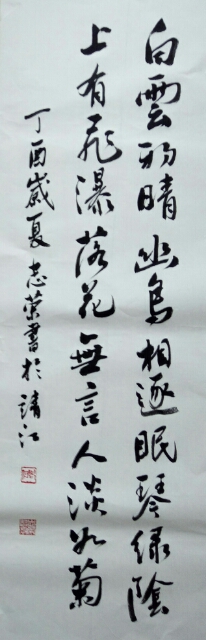 白雲初晴幽鳥相逐眠琴綠陰
上有飛瀑落花無言人淡如菊
丁酉歲夏志榮書於靖江